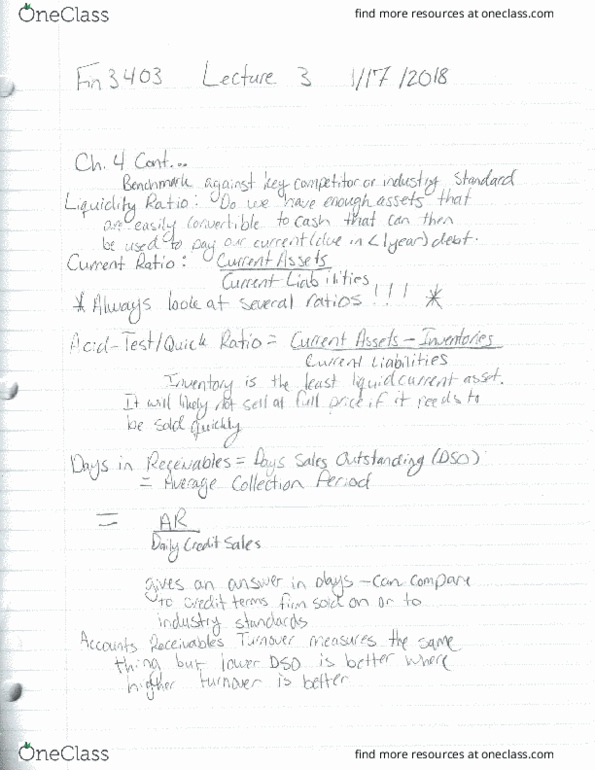 OneClass
find more resources at oneclass.com
Fin 3403 Lecture 3 1/17/2018
Ch. 4 Cont...
Benchmark against key competitor or industry standard
Liquidity Ratio: Do we have enough assets that
are easily convertible to cash that can then
be used to pay our current (due in <1 year) debt.
Current Ratio: Current Assets
Current Liabilities
* Always look at several ratios!!! *
Acid-Test/Quick Ratio = Current Assets - Inventories
Current Liabilities
Inventory is the least liquid current asset.
It will likely not sell at full price if it needs to
be sold quickly
Days in Receivables = Days Sales Outstanding (DSO)
= Average Collection Period
= AR
Daily Credit Sales
gives an answer in days - can compare
to credit terms firm sold on or to
industry standards
Accounts Receivables Turnover measures the same
thing but lower DSO is better where
higher turnover is better
OneClass
find more resources at oneclass.com